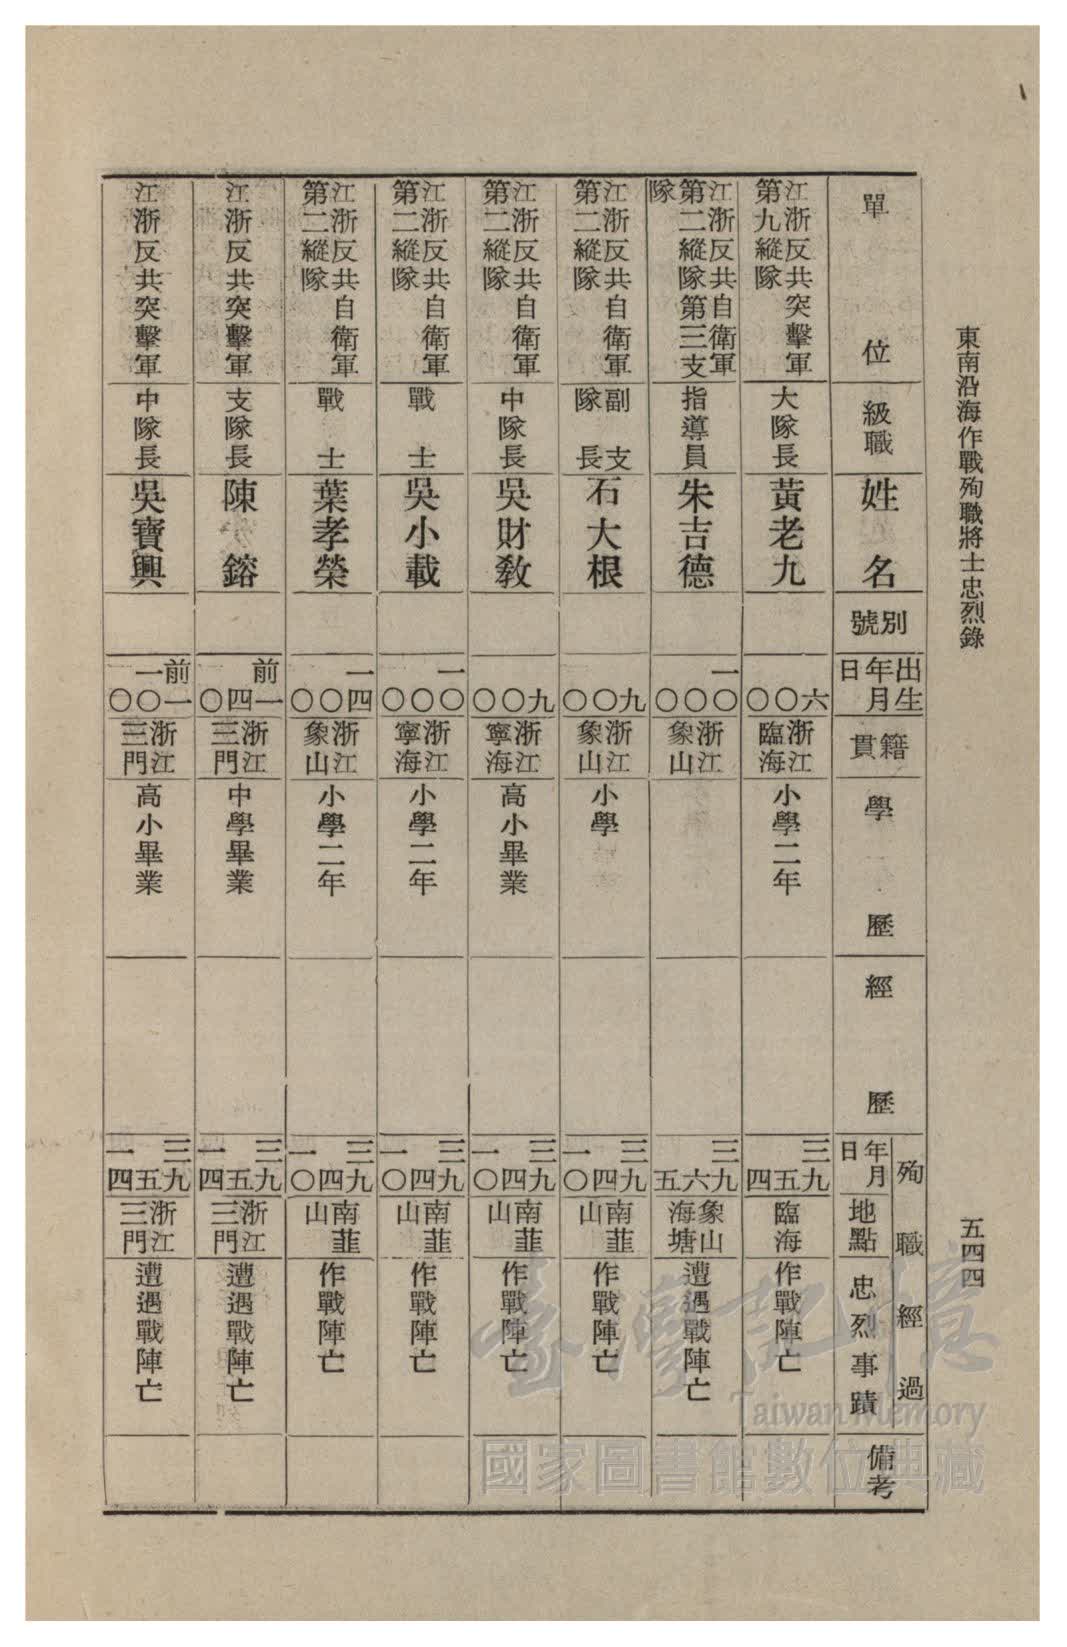 東南沿海作戰殉職將士忠烈錄
五四四
單位
級職
姓名
別號
出生年月日
籍貫
學歷
經歷
殉職經過
年月日
地點
忠烈事蹟
備考
江浙反共突擊軍
第九縱隊
大隊長
黃老九
六〇〇
浙江
臨海
小學二年
三九五四
臨海
作戰陣亡
江浙反共自衛軍
第二縱隊第三支
隊
指導員
朱吉德
一〇〇〇
浙江
象山
三九六五
象山
海塘
遭遇戰陣亡
江浙反共自衛軍
第二縱隊
副支
隊長
石大根
九〇〇
浙江
象山
小學
三九四一〇
南韮
山
作戰陣亡
江浙反共自衛軍
第二縱隊
中隊長
吳財教
九〇〇
浙江
寧海
高小畢業
三九四一〇
南韮
山
作戰陣亡
江浙反共自衛軍
第二縱隊
戰士
吳小載
一〇〇〇
浙江
寧海
小學二年
三九四一〇
南韮
山
作戰陣亡
江浙反共自衛軍
第二縱隊
戰士
葉孝榮
一四〇〇
浙江
象山
小學二年
三九四一〇
南韮
山
作戰陣亡
江浙反共突擊軍
支隊長
陳鎔
前一四〇
浙江
三門
中學畢業
三九五一四
浙江
三門
遭遇戰陣亡
江浙反共突擊軍
中隊長
吳寶興
前一一〇〇
浙江
三門
高小畢業
三九五一四
浙江
三門
遭遇戰陣亡
臺灣記憶
Taiwan Memory
國家圖書館數位典藏